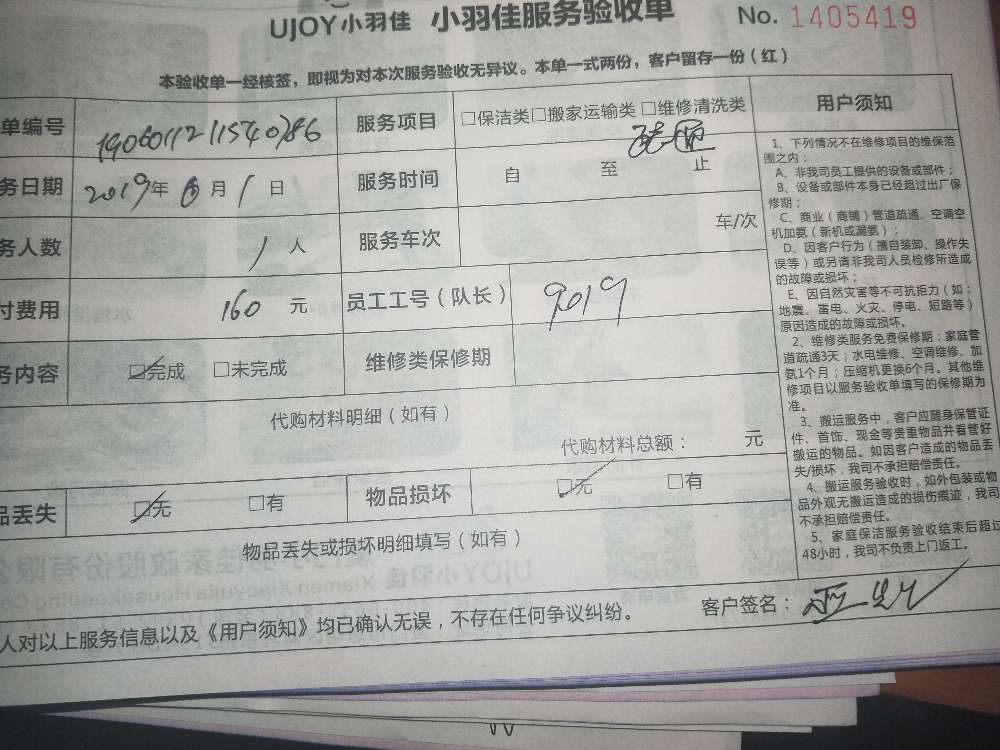 UJOY小羽佳 小羽佳服务验收单 No. 1405419
本验收单一经核签，即视为对本次服务验收无异议。本单一式两份，客户留存一份（红）
单编号 19060112115740786 服务项目 □保洁类□搬家运输类 □维修清洗类 用户须知
疏通
务日期 2019年 6月 1日 服务时间 自 至 止
务人数 1人 服务车次 车/次
付费用 160 元 员工工号（队长） 9019
务内容 ☑完成 □未完成 维修类保修期
代购材料明细（如有）
代购材料总额： 元
品丢失 ☑无 □有 物品损坏 ☑无 □有
物品丢失或损坏明细填写（如有）
1、下列情况不在维修项目的维保范
围之内：
A、非我司员工提供的设备或部件；
B、设备或部件本身已经超过出厂保
修期；
C、商业（商铺）管道疏通、空调空
机加氨（新机或漏氨）；
D、因客户行为（擅自装卸、操作失
误等）或另请非我司人员检修所造成
的故障或损坏；
E、因自然灾害等不可抗拒力（如：
地震、雷电、火灾、停电、短路等）
原因造成的故障或损坏。
2、维修类服务免费保修期：家庭管
道疏通3天；水电维修、空调维修、加
氨1个月；压缩机更换6个月。其他维
修项目以服务验收单填写的保修期为
准。
3、搬运服务中，客户应随身保管证
件、首饰、现金等贵重物品并看管好
搬运的物品。如因客户造成的物品丢
失/损坏，我司不承担赔偿责任。
4、搬运服务验收时，如外包装或物
品外观无搬运造成的损伤痕迹，我司
不承担赔偿责任。
5、家庭保洁服务验收结束后超过
48小时，我司不负责上门返工。
人对以上服务信息以及《用户须知》均已确认无误，不存在任何争议纠纷。 客户签名：